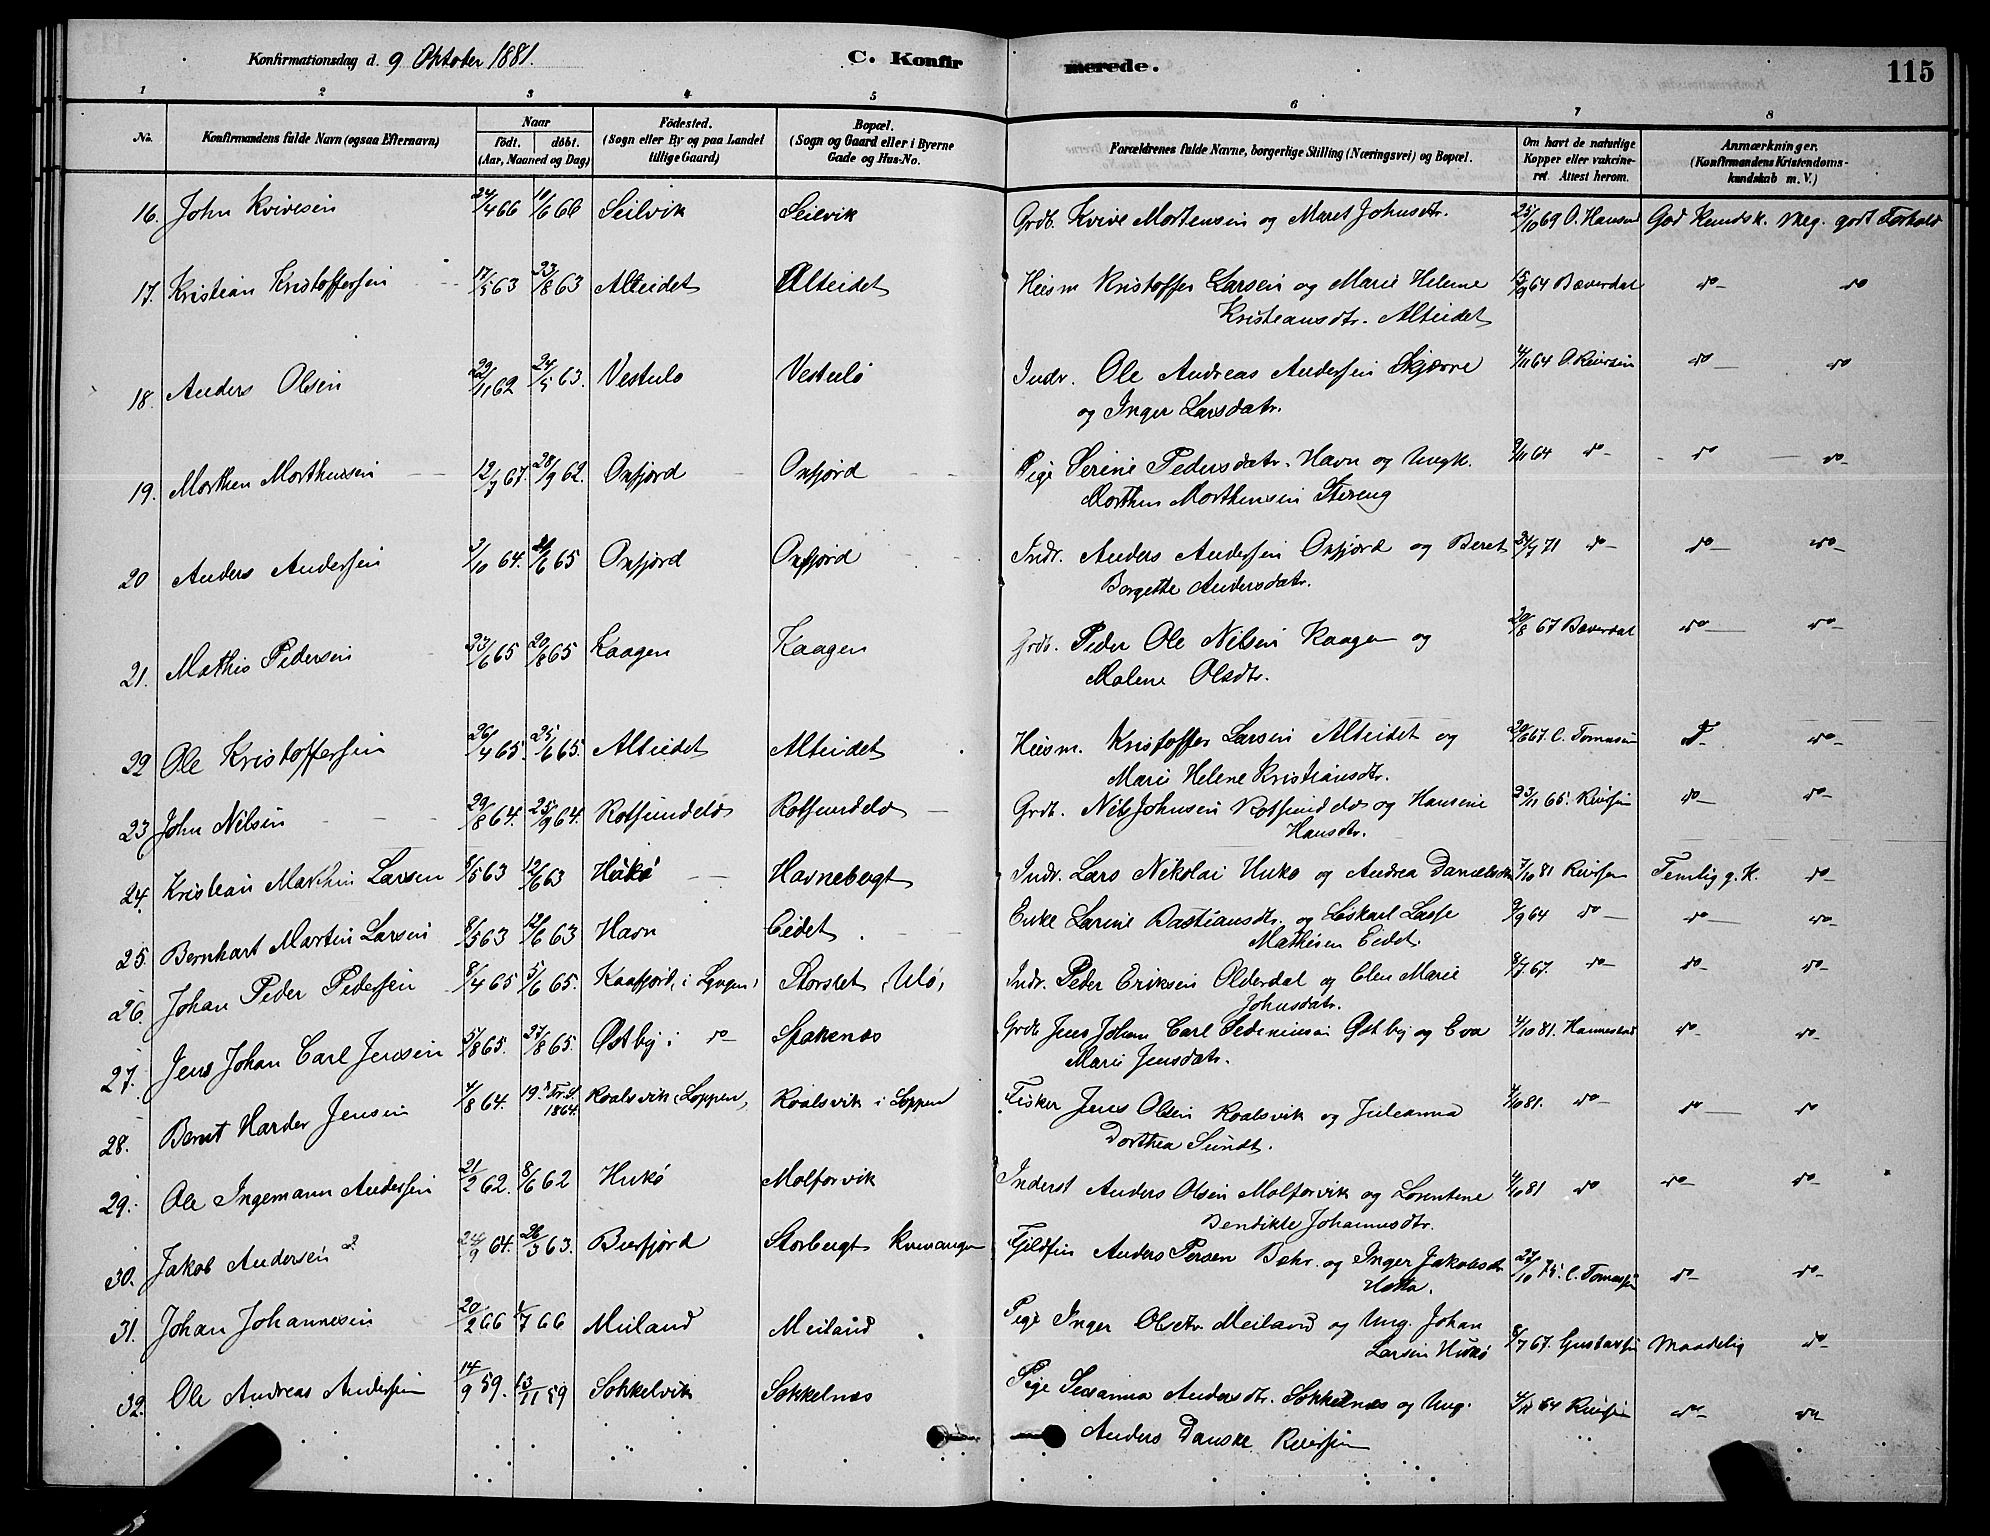 Konfirmationsdag d. 9 Oktober 1881. C. Konfirmerede. 115
1 2 3 4 5 6 7 8
No. Konfirmandens fulde Navn (ogsaa Efternavn) Naar født. døbt. (Aar, Maaned og Dag) Fødested. (Sogn eller By og paa Landet tillige Gaard) Bopæl. (Sogn og Gaard eller i Byerne Gade og Hus-No. Forældrenes fulde Navne, borgerlige Stilling (Næringsvei) og Bopæl. Om havt de naturlige Kopper eller vakcineret. Attest herom. Anmærkninger. (Konfirmandens Kristendomskundskab m. V.)
16. John Kvivesen 24/4 66 10/6 66 Seilvik Seilvik Grdb. Kvive Mortensen og Maret Johnsdtr. 25/10 69 O. Hansen God Kundsk. Meg. godt Forhold
17. Kristian Kristoffersen 17/5 63 23/8 63 Alteidet Alteidet Huusm Kristoffer Larsen og Marie Helene 15/9 64 Bæverdal do do
Kristiansdtr. Alteidet
18. Anders Olsen 22/11 62 24/5 63. Vestulø Vestulø Indr. Ole Andreas Andersen Skjærve 4/11 64 O. Reiersen do do
og Inger Larsdatr.
19. Morthen Morthensen 12/7 67. 28/9 62. Oxfjord Oxfjord Pige Serine Pedersdatr. Havn og Ungk. 9/11 64 do do do
Morthen Morthensen Stereng
20 Anders Andersen 3/10 64. 21/6 65 Oxfjord Oxfjord Indr. Anders Andersen Oxfjord og Beret 24/7 71 do do do
Borgette Andersdatr.
21. Mathis Pedersen 23/6 65 20/8 65 Kaagen Kaagen Grdb. Peder Ole Nilsen Kaagen og 20/8 67 Bæverdal do do
Malene Olsdtr.
22 Ole Kristoffersen 26/4 65. 25/6 65. Alteidet Alteidet Huusm. Kristoffer Larsen Alteidet og 20/6 67. C. Tomasen do do
Marie Helene Kristiansdtr.
23 John Nilsen 29/8 64. 25/9 64. Rotsundelv Rotsundelv Grdb. Nils Johnsen Rotsundelv og Hansine 23/11 65. Reiersen do do
Hansdtr.
24. Kristian Marthin Larsen 8/5 63 12/6 63 Hukø Havnebugt Indr. Lars Nikolai Hukø og Andrea Danielsdtr 7/10 81 Reiersen Temlig g. K. do
25. Bernhart Martin Larsen 8/5 63 12/6 63 Havn Eidet Enke Larine Bastiansdtr. og Lasse 9/9 64 do do do
Mathisen Eidet.
26. Johan Peder Pedersen 8/4 65 5/6 65. Kaafjord, i Lyngen, Storslet, Ulø, Indr. Peder Eriksen Olderdal og Elen Marie 8/7 67. do do do
Johnsdatr.
27. Jens Johan Carl Jensen 5/8 65. 27/8 65. Østby i do Spakenæs Grdb Jens Johan Carl Østby og Eva 4/10 81. Hannestad do do
Marie Jensdatr.
28. Bernt Harder Jensen 4/8 64. 19. S. 1864. Roalsvik, Loppen, Roalsvik i Loppen Fisker Jens Olsen Roalsvik og Julianna 4/10 81. do do do
Dorthea Sundt.
29. Ole Ingemann Andersen 21/2 62. 8/6 62 Hukø Molforvik Inderst Anders Olsen Molforvik og Lorentine 4/10 81 do do do
Bendikte Johannesdtr.
30. Jakob Andersen 2 24/9 64. 26/3 63. Burfjord Storbugt Kvænangen Fjeldfin Anders Persen Bæhr. og Inger Jakobsdtr 27/10 75. C. Tomassen do do
31. Johan Johannesen 20/2 66 1/7 66 Meiland Meiland Pige Inger Olsdtr. Meiland og Ung. Johan 8/7 67. Gustavsen Maadelig do
Larsen Hukø
32. Ole Andreas Andersen 14/9 59. 13/11 59 Sokkelvik Sokkelnæs Pige Susanna Andersdtr. Sokkelnæs og Ung. 4/11 64 Reiersen do do
Anders Danske Reiersen